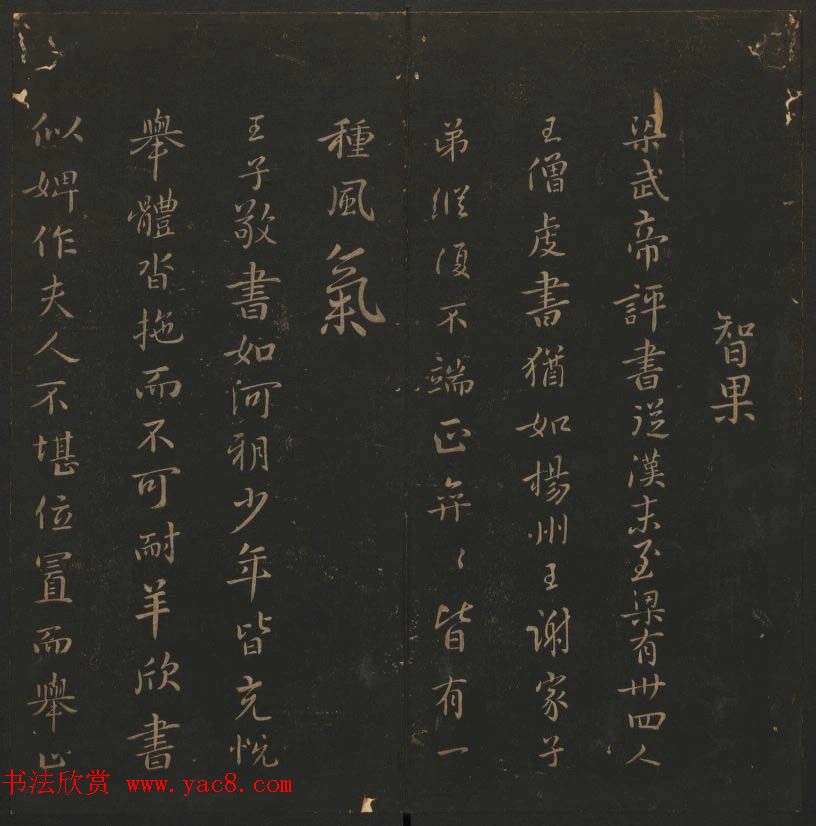 智果
梁武帝評書從漢末至梁有卅四人
王僧虔書猶如楊州王謝家子
弟縱復不端正弈〻皆有一
種風氣
王子敬書如河朔少年皆充悅
舉體沓拖而不可耐羊欣書
似婢作夫人不堪位置而舉止
书法欣赏 www.yac8.com